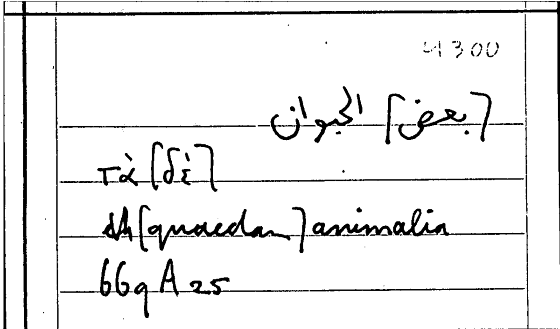 4300
[بعض] الحيوان
τὰ [δὲ]
[quaedam] animalia
669 A 25